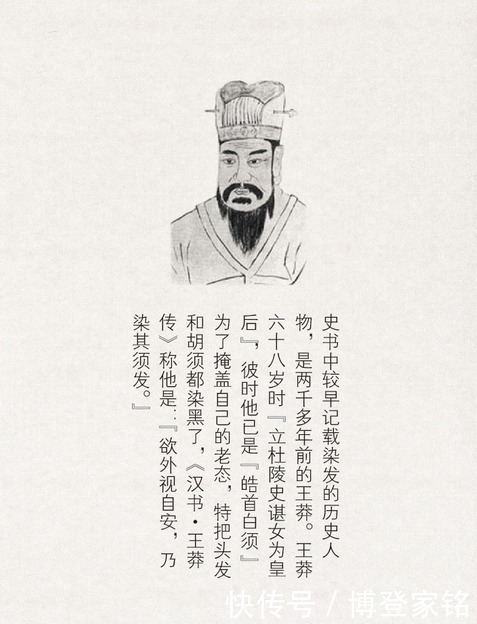 史书中较早记载染发的历史人
物，是两千多年前的王莽。王莽
六十八岁时『立杜陵史谌女为皇
后』，彼时他已是『皓首白须』
为了掩盖自己的老态，特把头发
和胡须都染黑了，《汉书·王莽
传》称他是：『欲外视自安，乃
染其须发。』
快传号/博登家铭